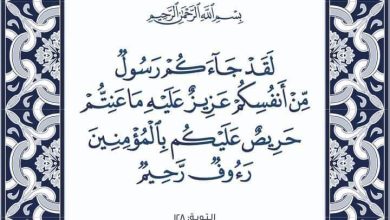 بِسْمِ اللَّهِ الرَّحْمَٰنِ الرَّحِيمِ
لَقَدْ جَاءَكُمْ رَسُولٌ
مِّنْ أَنفُسِكُمْ عَزِيزٌ عَلَيْهِ مَا عَنِتُّمْ
حَرِيصٌ عَلَيْكُم بِالْمُؤْمِنِينَ
رَءُوفٌ رَّحِيمٌ
التوبة: ١٢٨